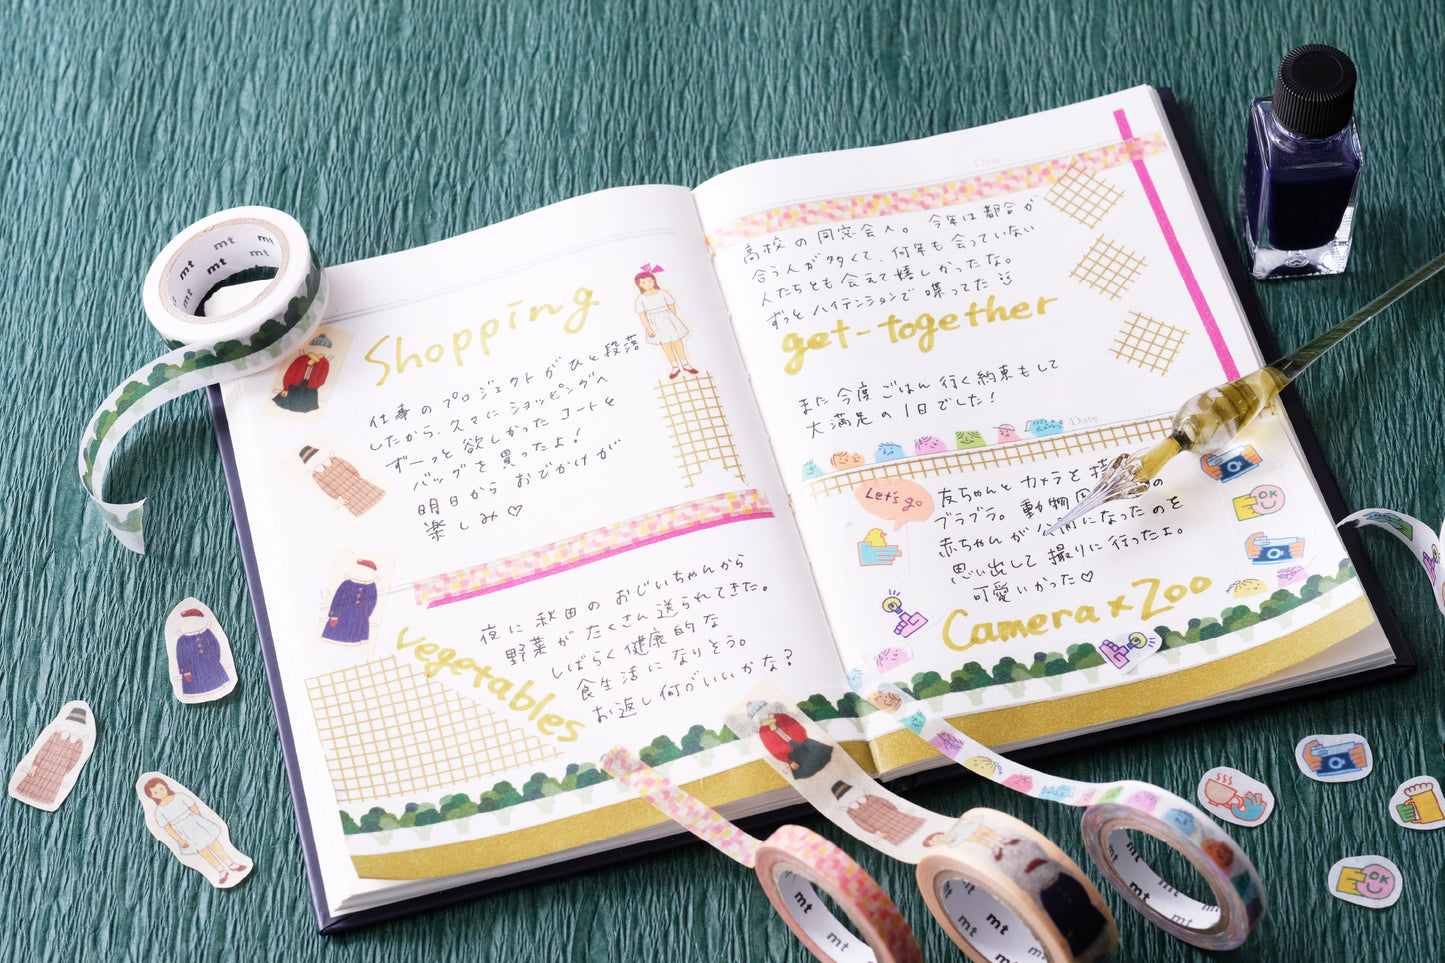 Shopping
仕事のプロジェクトがひと段落
したから、久々にショッピングへ
ずーっと欲しかったコートと
バッグを買ったよ!
明日からおでかけが
楽しみ♡
夜に秋田のおじいちゃんから
野菜がたくさん送られてきた。
しばらく健康的な
食生活になりそう。
お返し何がいいかな?
vegetables
Date
高校の同窓会人。今年は都合が
合う人が多くて、何年も会っていない
人たちとも会えて嬉しかったな。
ずっとハイテンションで喋ってた
get-together
また今度ごはん行く約束もして
大満足の1日でした!
Date
Let's go
友ちゃんとカメラと
ブラブラ。動物園の
赤ちゃんが公開になったのを
思い出して撮りに行ったよ。
可愛いかった♡
Camera×Zoo
OK
OK
mt mt
mt mt
mt
mt
mt
mt
mt
mt
mt
mt